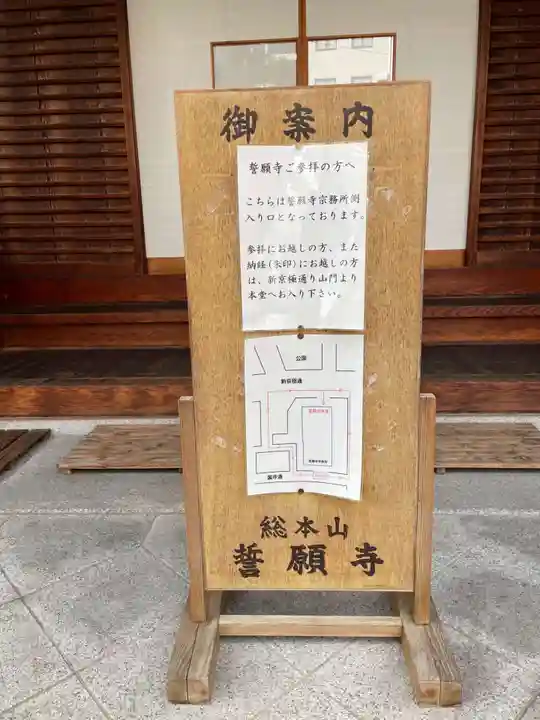 御案内
誓願寺ご参拝の方へ
こちらは誓願寺宗務所側
入り口となっております。
参拝にお越しの方、また
納経(朱印)にお越しの方
は、新京極通り山門より
本堂へお入り下さい。
公園
新京極通
裏寺通
総本山
誓願寺